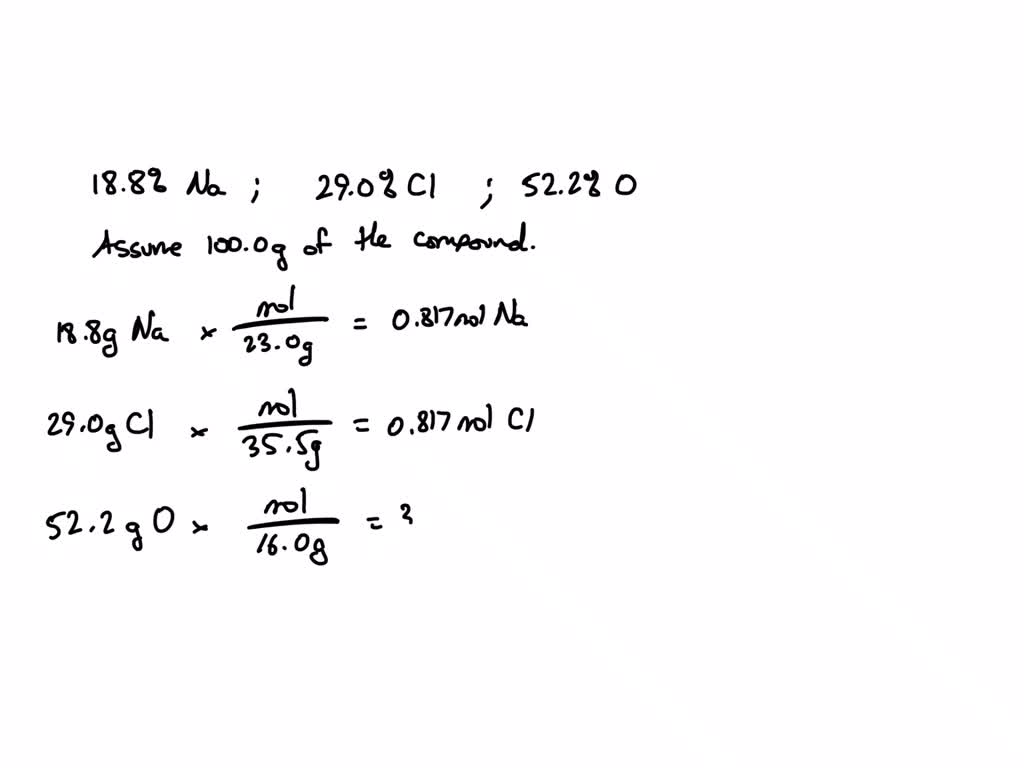 18.8% Na ; 29.0% Cl ; 52.2% O
Assume 100.0g of the compound.
18.8g Na × mol/23.0g = 0.817 mol Na
29.0g Cl × mol/35.5g = 0.817 mol Cl
52.2 g O × mol/16.0g = 3